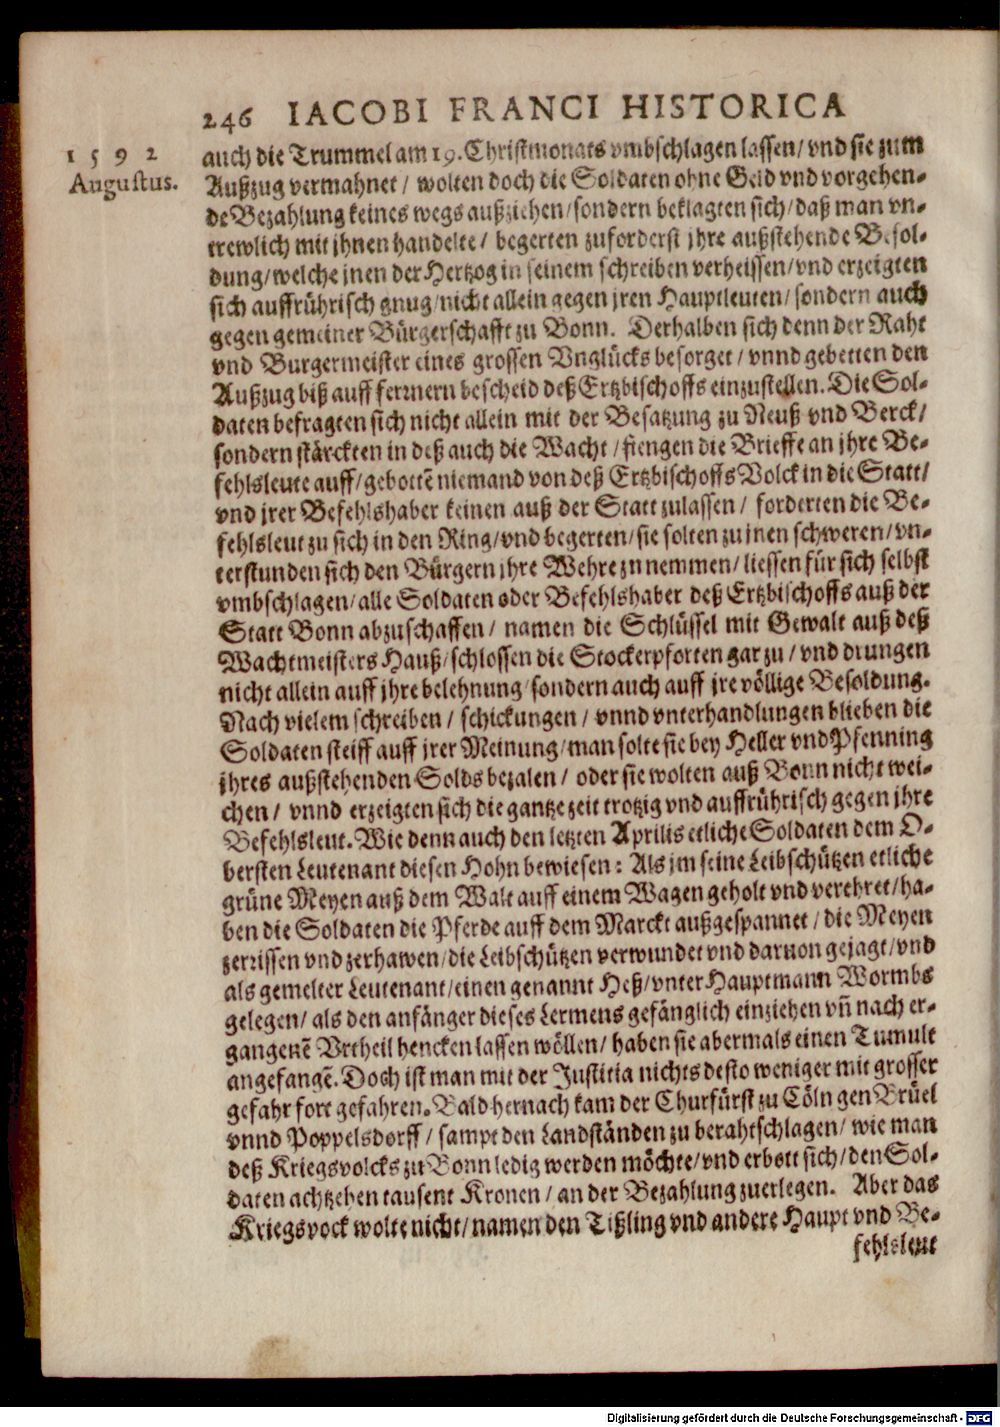 246 IACOBI FRANCI HISTORICA
1592
Augustus.
auch die Trummel am 19. Christmonats vmbschlagen lassen/ vnd sie zum
Außzug vermahnet/ wolten doch die Soldaten ohne Geld vnd vorgehen-
de Bezahlung keines wegs außziehen/ sondern beklagten sich/ daß man vn-
trewlich mit jhnen handelte/ begerten zuforderst jhre außstehende Besol-
dung/ welche jnen der Hertzog in seinem schreiben verheissen/ vnd erzeigten
sich auffrührisch gnug/ nicht allein gegen jren Hauptleuten/ sondern auch
gegen gemeiner Bürgerschafft zu Bonn. Derhalben sich denn der Raht
vnd Burgermeister eines grossen Vnglücks besorget/ vnnd gebetten den
Außzug biß auff fernern bescheid deß Ertzbischoffs einzustellen. Die Sol-
daten befragten sich nicht allein mit der Besatzung zu Neuß vnd Berck/
sondern stärckten in deß auch die Wacht/ fiengen die Brieffe an jhre Be-
fehlsleute auff/ gebottē niemand von deß Ertzbischoffs Volck in die Statt/
vnd jrer Befehlshaber keinen auß der Statt zulassen/ forderten die Be-
fehlsleut zu sich in den Ring/ vnd begerten/ sie solten zu jnen schweren/ vn-
terstunden sich den Bürgern jhre Wehre zu nemmen/ liessen für sich selbst
vmbschlagen/ alle Soldaten oder Befehlshaber deß Ertzbischoffs auß der
Statt Bonn abzuschaffen/ namen die Schlüssel mit Gewalt auß deß
Wachtmeisters Hauß/ schlossen die Stockerpforten gar zu/ vnd drungen
nicht allein auff jhre belehnung/ sondern auch auff jre völlige Besoldung.
Nach vielem schreiben/ schickungen/ vnnd vnterhandlungen blieben die
Soldaten steiff auff jrer Meinung/ man solte sie bey Heller vnd Pfenning
jhres außstehenden Solds bezalen/ oder sie wolten auß Bonn nicht wei-
chen/ vnnd erzeigten sich die gantze zeit trotzig vnd auffrührisch gegen jhre
Befehlsleut. Wie denn auch den letzten Aprilis etliche Soldaten dem O-
bersten Leutenant diesen Hohn bewiesen: Als jm seine Leibschützen etliche
grüne Meyen auß dem Walt auff einem Wagen geholt vnd verehret/ ha-
ben die Soldaten die Pferde auff dem Marckt außgespannet/ die Meyen
zerrissen vnd zerhawen/ die Leibschützen verwundet vnd daruon gejagt/ vnd
als gemelter Leutenant/ einen genannt Heß/ vnter Hauptmann Wormbs
gelegen/ als den anfänger dieses Lermens gefänglich einziehen vñ nach er-
gangenē Vrtheil hencken lassen wöllen/ haben sie abermals einen Tumult
angefangē. Doch ist man mit der Justitia nichts desto weniger mit grosser
gefahr fort gefahren. Bald hernach kam der Churfürst zu Cöln gen Brüel
vnnd Poppelsdorff/ sampt den Landständen zu berahtschlagen/ wie man
deß Kriegsvolcks zu Bonn ledig werden möchte/ vnd erbott sich/ den Sol-
daten achtzehen tausent Kronen/ an der Bezahlung zuerlegen. Aber das
Kriegsvock wolte nicht/ namen den Tißling vnd andere Haupt vnd Be-
fehlsleut
Digitalisierung gefördert durch die Deutsche Forschungsgemeinschaft - DFG